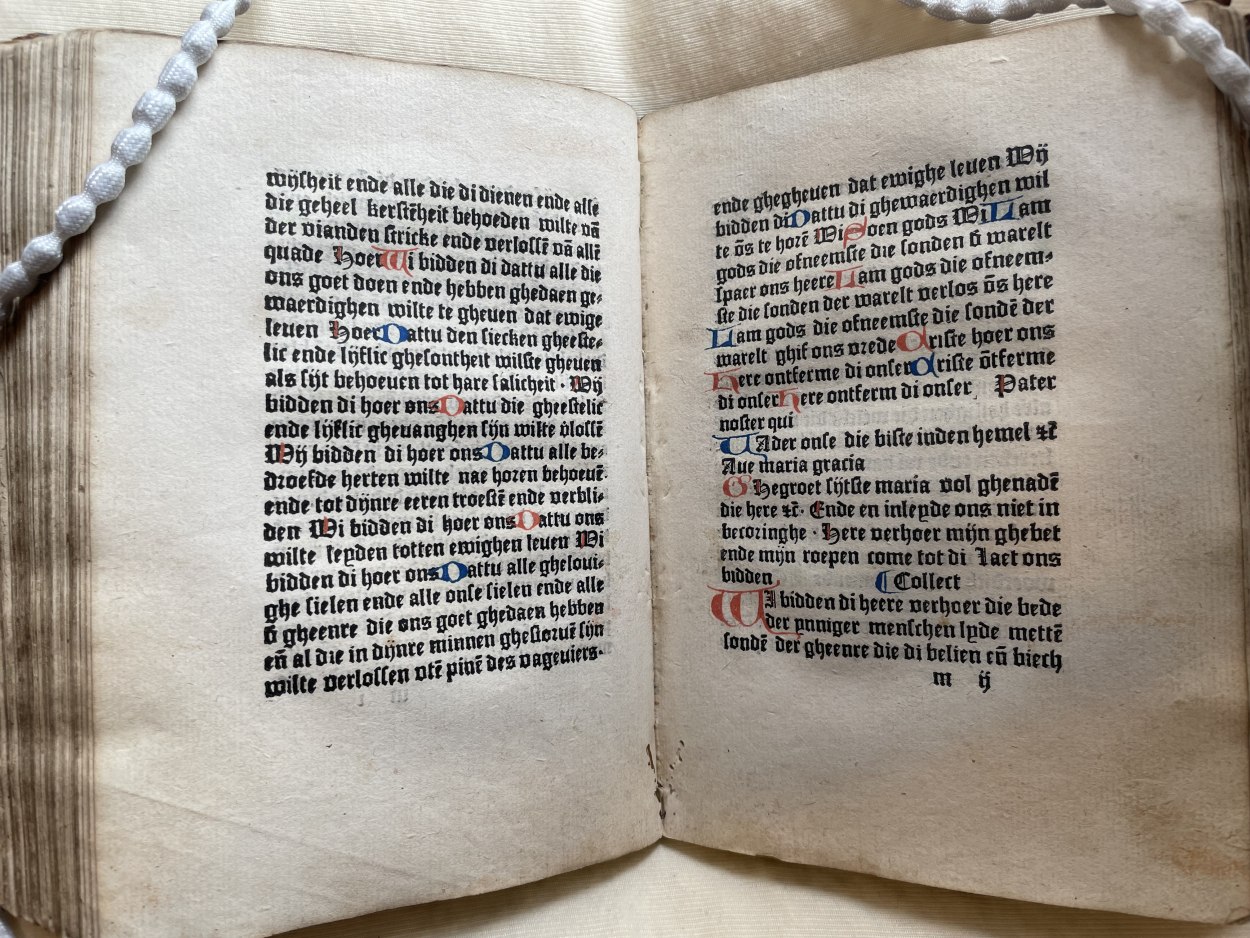 wijsheit ende alle die di dienen ende alle
die geheel kerstēheit behoeden wilte vā
der vianden stricke ende verlossē vā allē
quade Hoer Wi bidden di dattu alle die
ons goet doen ende hebben ghedaen ge⸗
waerdighen wilte te gheuen dat ewige
leuen Hoer Dattu den siecken gheeste⸗
lic ende lijflic ghesontheit wilste gheuen
als sijt behoeuen tot hare salicheit · Wij
bidden di hoer ons Dattu die gheestelic
ende lijflic gheuanghen sijn wilte v̄lossē
Wij bidden di hoer ons Dattu alle be⸗
droefde herten wilte nae horen behoeuē
ende tot dijnre eeren troestē ende verbli⸗
den Wi bidden di hoer ons Dattu ons
wilte leyden totten ewighen leuen Wi
bidden di hoer ons Dattu alle gheloui⸗
ghe sielen ende alle onse sielen ende alle
d̄ gheenre die ons goet ghedaen hebben
eñ al die in dijnre minnen ghestoruē sijn
wilte verlossen vtē pinē des vageuiers⸗
ende ghegheuen dat ewighe leuen Wij
bidden di Dattu di ghewaerdighen wil
te ōs te horē Wi Soen gods Wi Lam
gods die ofneemste die sonden d̄ warelt
spaer ons heere Lam gods die ofneem⸗
ste die sonden der warelt verlos ōs here
Lam gods die ofneemste die sondē der
warelt ghif ons vrede Criste hoer ons
Here ontferme di onser Criste ōtferme
di onser Here ontferm di onser Pater
noster qui
VAder onse die biste inden hemel ⁊c̄
Aue maria gracia
GHegroet sijtste maria vol ghenadē
die here ⁊c̄· Ende en inleyde ons niet in
becoringhe · Here verhoer mijn ghebet
ende mijn roepen come tot di Laet ons
bidden ⸿ Collect
WI bidden di heere verhoer die bede
der ynniger menschen lyde mettē
sondē der gheenre die di belien eñ biech
m ij